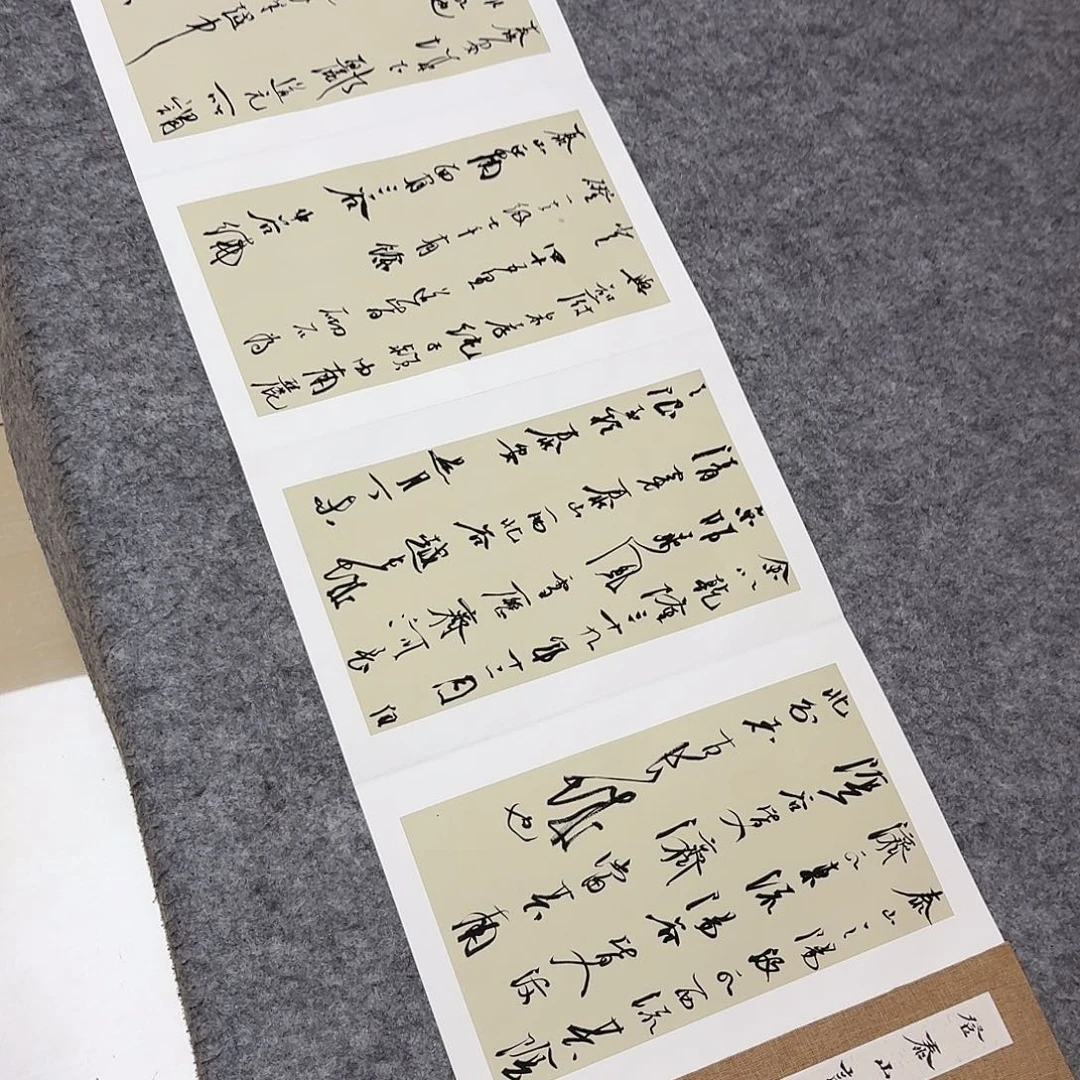 登泰山
泰山之陽汶水西流其陰
濟水東流陽谷皆入汶
陰谷皆入濟當其南
北分者古長城也
余以乾隆三十九年十二月自
京師乘風雪歷齊河長
清穿泰山西北谷越長城
之限至於泰安是月丁未
與知府朱孝純子潁由南麓
登四十五里道皆砌石為
磴其級七千有餘
泰山正南面有三谷中谷繞
泰安城下酈道元所謂